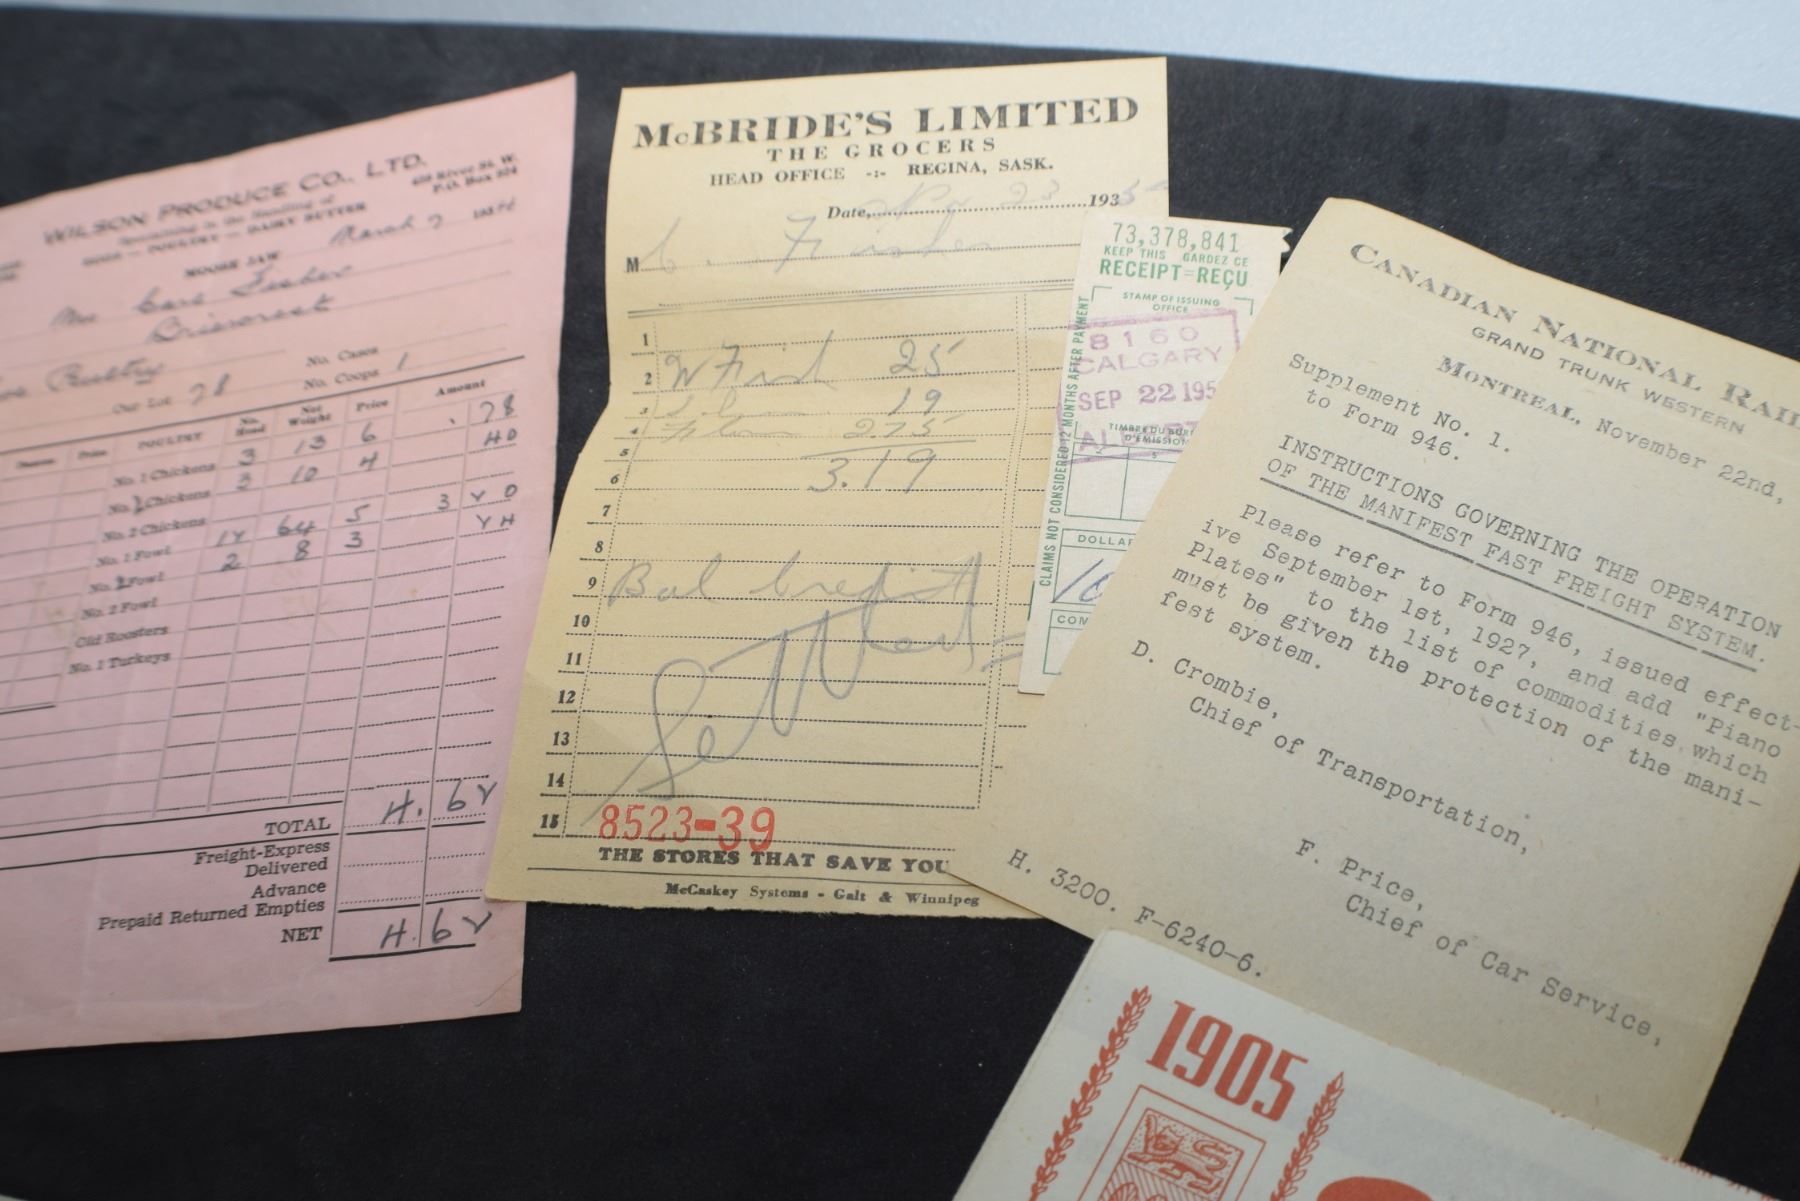 WILSON PRODUCE CO., LTD.
Specializing in the Handling of
EGGS — POULTRY — DAIRY BUTTER
459 River St. W.
P.O. Box 524
MOOSE JAW March 7 193
Mr Carl
Briercrest
Our Lot 78
No. Cases
No. Coops 1
POULTRY No. Head Net Weight Price Amount
No. 1 Chickens 3 13 6 .78
No. 1 Chickens 3 10 4 40
No. 2 Chickens
No. 1 Fowl 12 64 5 3 20
No. 2 Fowl 2 8 3 24
No. 2 Fowl
Old Roosters
No. 1 Turkeys
TOTAL 4.62
Freight-Express
Delivered
Advance
Prepaid Returned Empties
NET 4.62
McBRIDE'S LIMITED
THE GROCERS
HEAD OFFICE -:- REGINA, SASK.
Date, 23 193
M C.
1
2 25
3 19
4 275
5
6 3.19
7
8
9 Bal
10
11
12
13
14
15
8523-39
THE STORES THAT SAVE YOU
McCaskey Systems - Galt & Winnipeg
73,378,841
KEEP THIS GARDEZ CE
RECEIPT=REÇU
STAMP OF ISSUING
OFFICE
8160
CALGARY
SEP 22 195
TIMBRE DU BUR
D'ÉMISSION
CLAIMS NOT CONSIDERED 12 MONTHS AFTER PAYMENT
DOLLAR
10
COM
CANADIAN NATIONAL RAI
GRAND TRUNK WESTERN
MONTREAL, November 22nd,
Supplement No. 1.
to Form 946.
INSTRUCTIONS GOVERNING THE OPERATION
OF THE MANIFEST FAST FREIGHT SYSTEM.
Please refer to Form 946, issued effect-
ive September 1st, 1927, and add "Piano
Plates" to the list of commodities, which
must be given the protection of the mani-
fest system.
D. Crombie,
Chief of Transportation,
F. Price,
Chief of Car Service,
H. 3200. F-6240-6.
1905